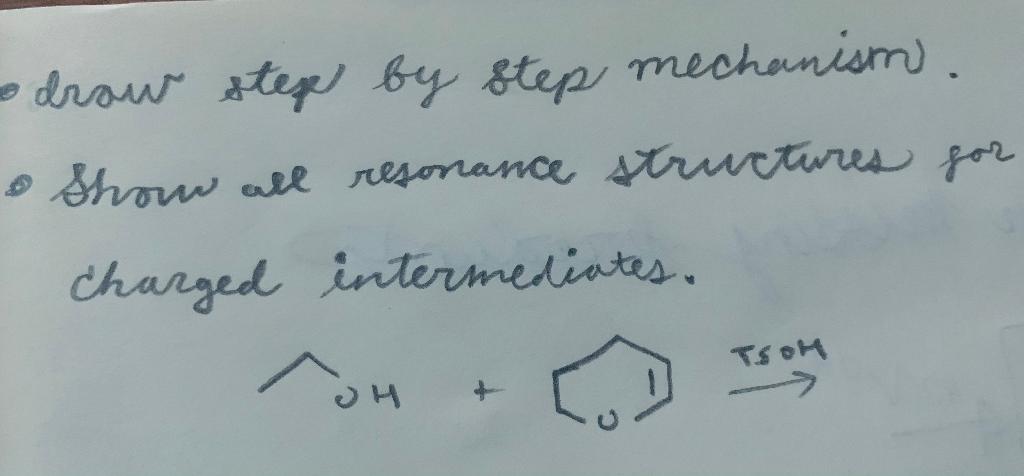 • draw step by step mechanism.
• Show all resonance structures for
charged intermediates.
OH + O TSOH